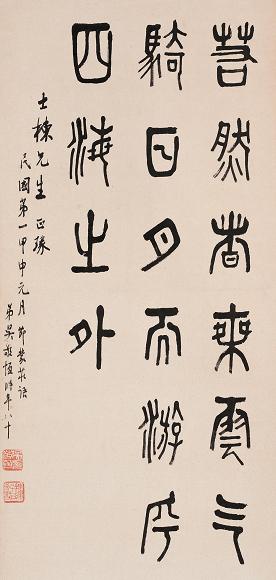 若然者乘雲气
騎日月而游乎
四海之外
士棟先生 正
民國第一甲申元月節蒙莊語
弟吳敬恆時年八十